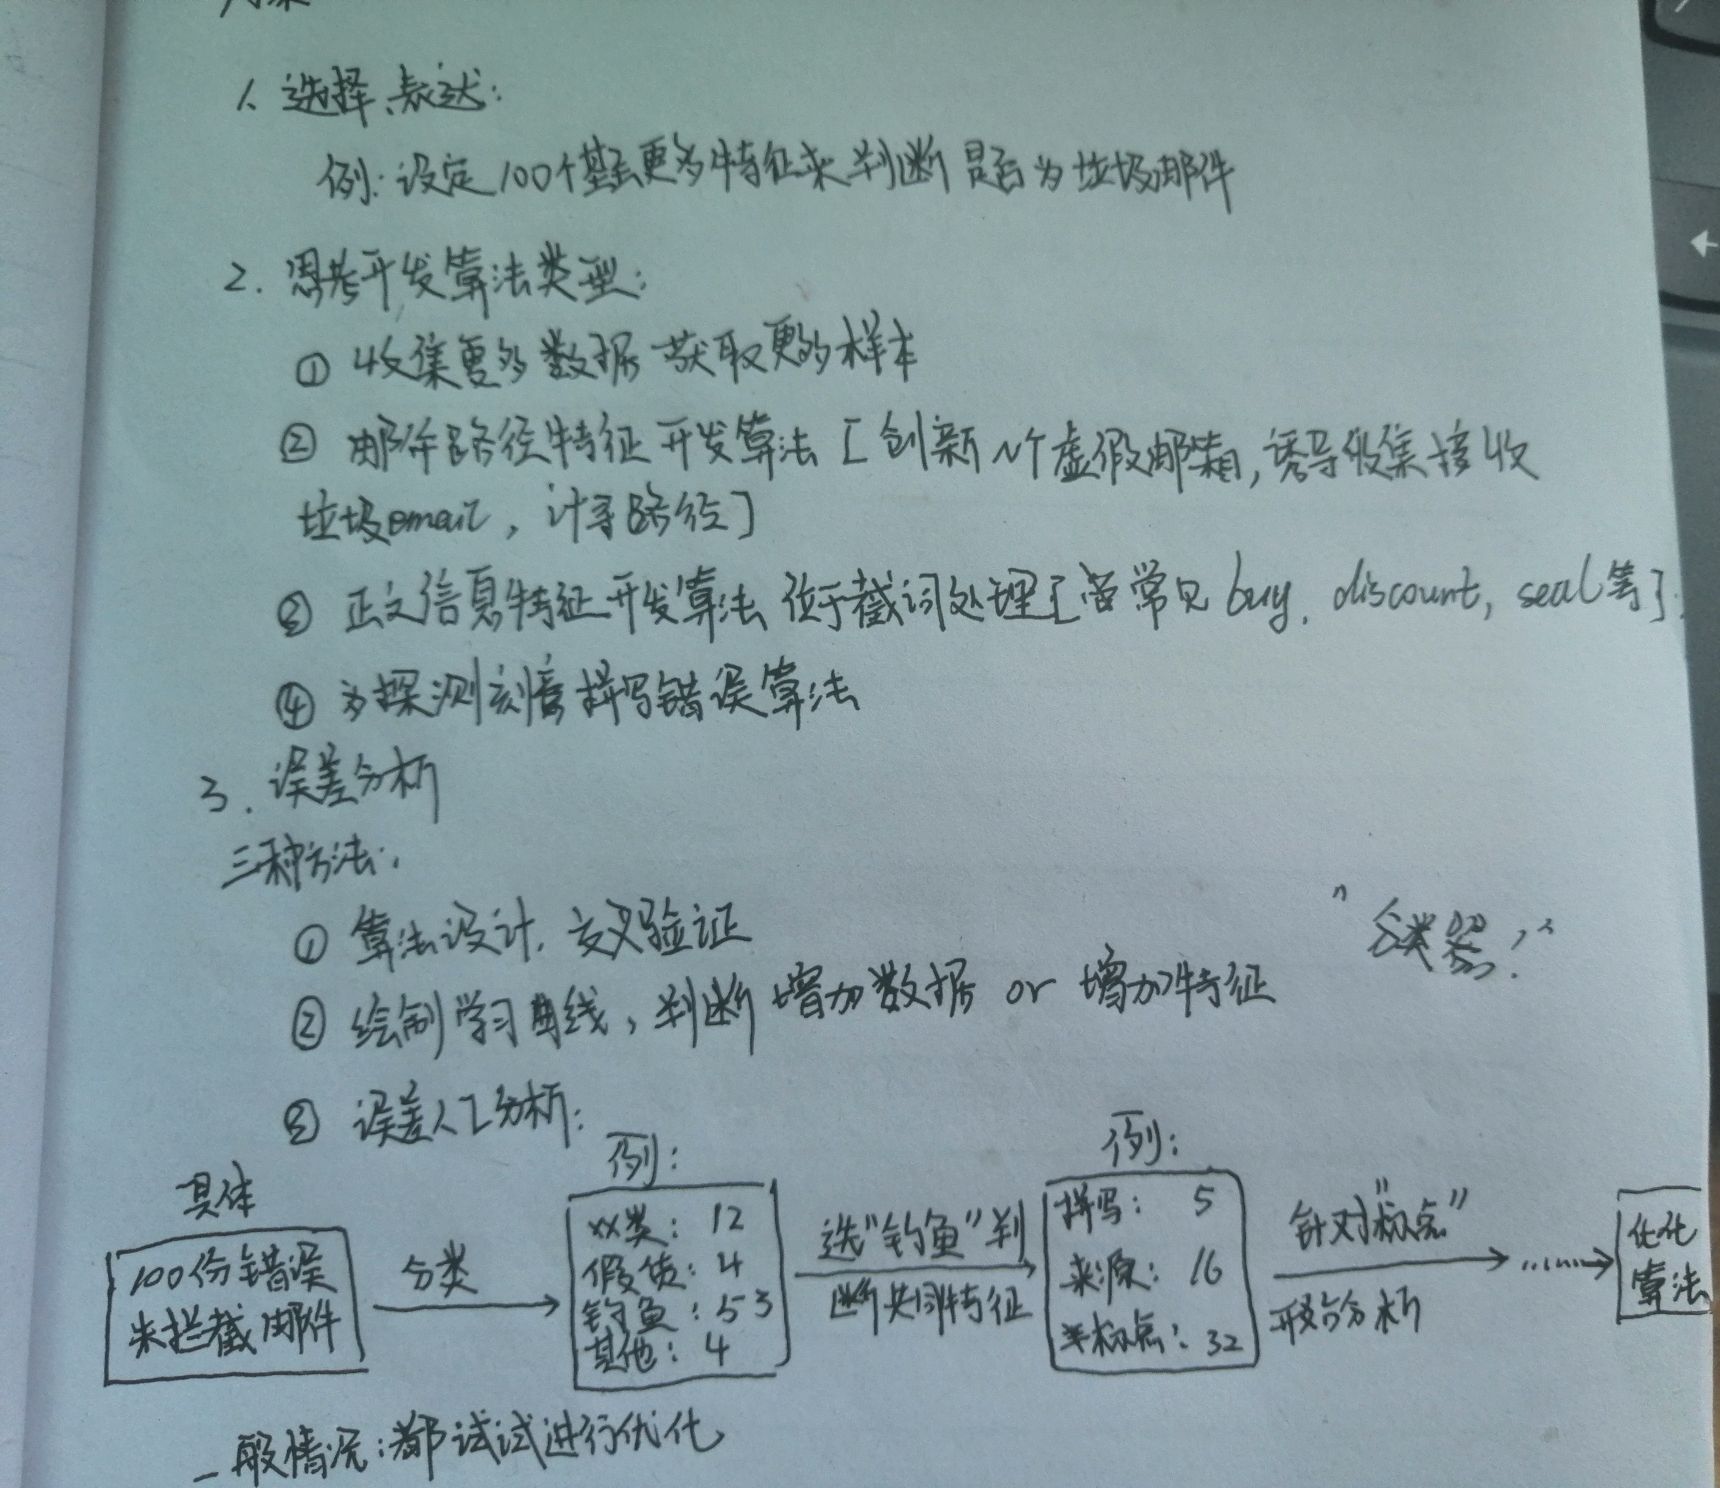 1. 选择、表达:
例: 设定100个甚至更多特征来判断是否为垃圾邮件
2. 思考开发算法类型:
① 收集更多数据 获取更多样本
② 邮件路径特征开发算法 [创新 N个虚假邮箱, 诱导收集接收
垃圾email, 计寻路径]
③ 正文信息特征开发算法 位于截词处理[常见 buy, discount, seal等]
④ 为探测刻意拼写错误算法
3. 误差分析
三种方法:
① 算法设计. 交叉验证
"分类器!"
② 绘制学习曲线, 判断增加数据 or 增加特征
③ 误差人工分析:
具体
100份错误
未拦截邮件
分类
例:
xx类: 12
假货: 4
钓鱼: 53
其他: 4
选"钓鱼"判
断共同特征
例:
拼写: 5
来源: 16
标点: 32
针对"标点"
分析
......
优化
算法
一般情况: 都试试进行优化